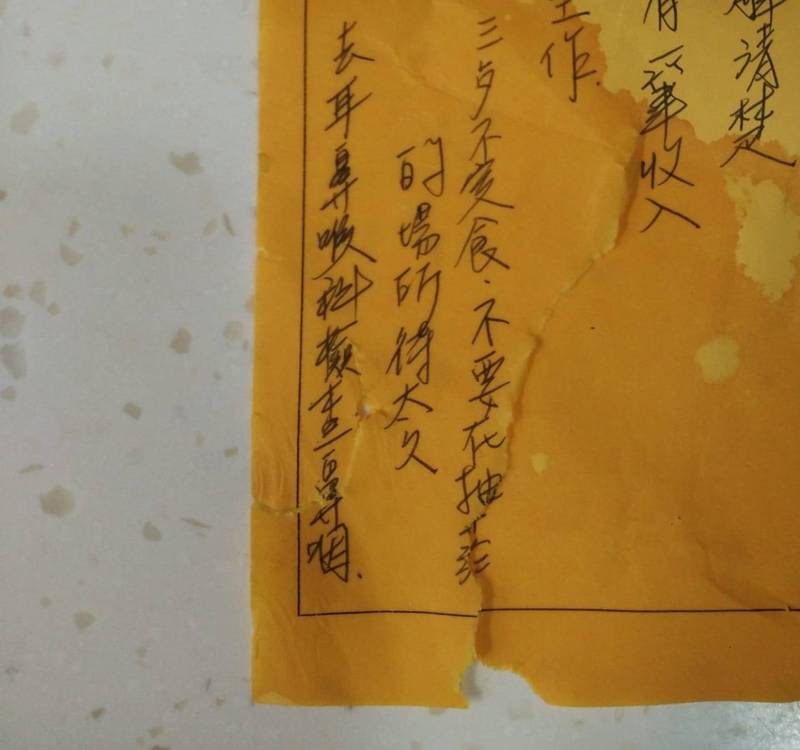 解清楚
有一筆收入
工作.
三歺不定食.不要在抽菸
的場所待太久
去耳鼻喉科檢查鼻咽.